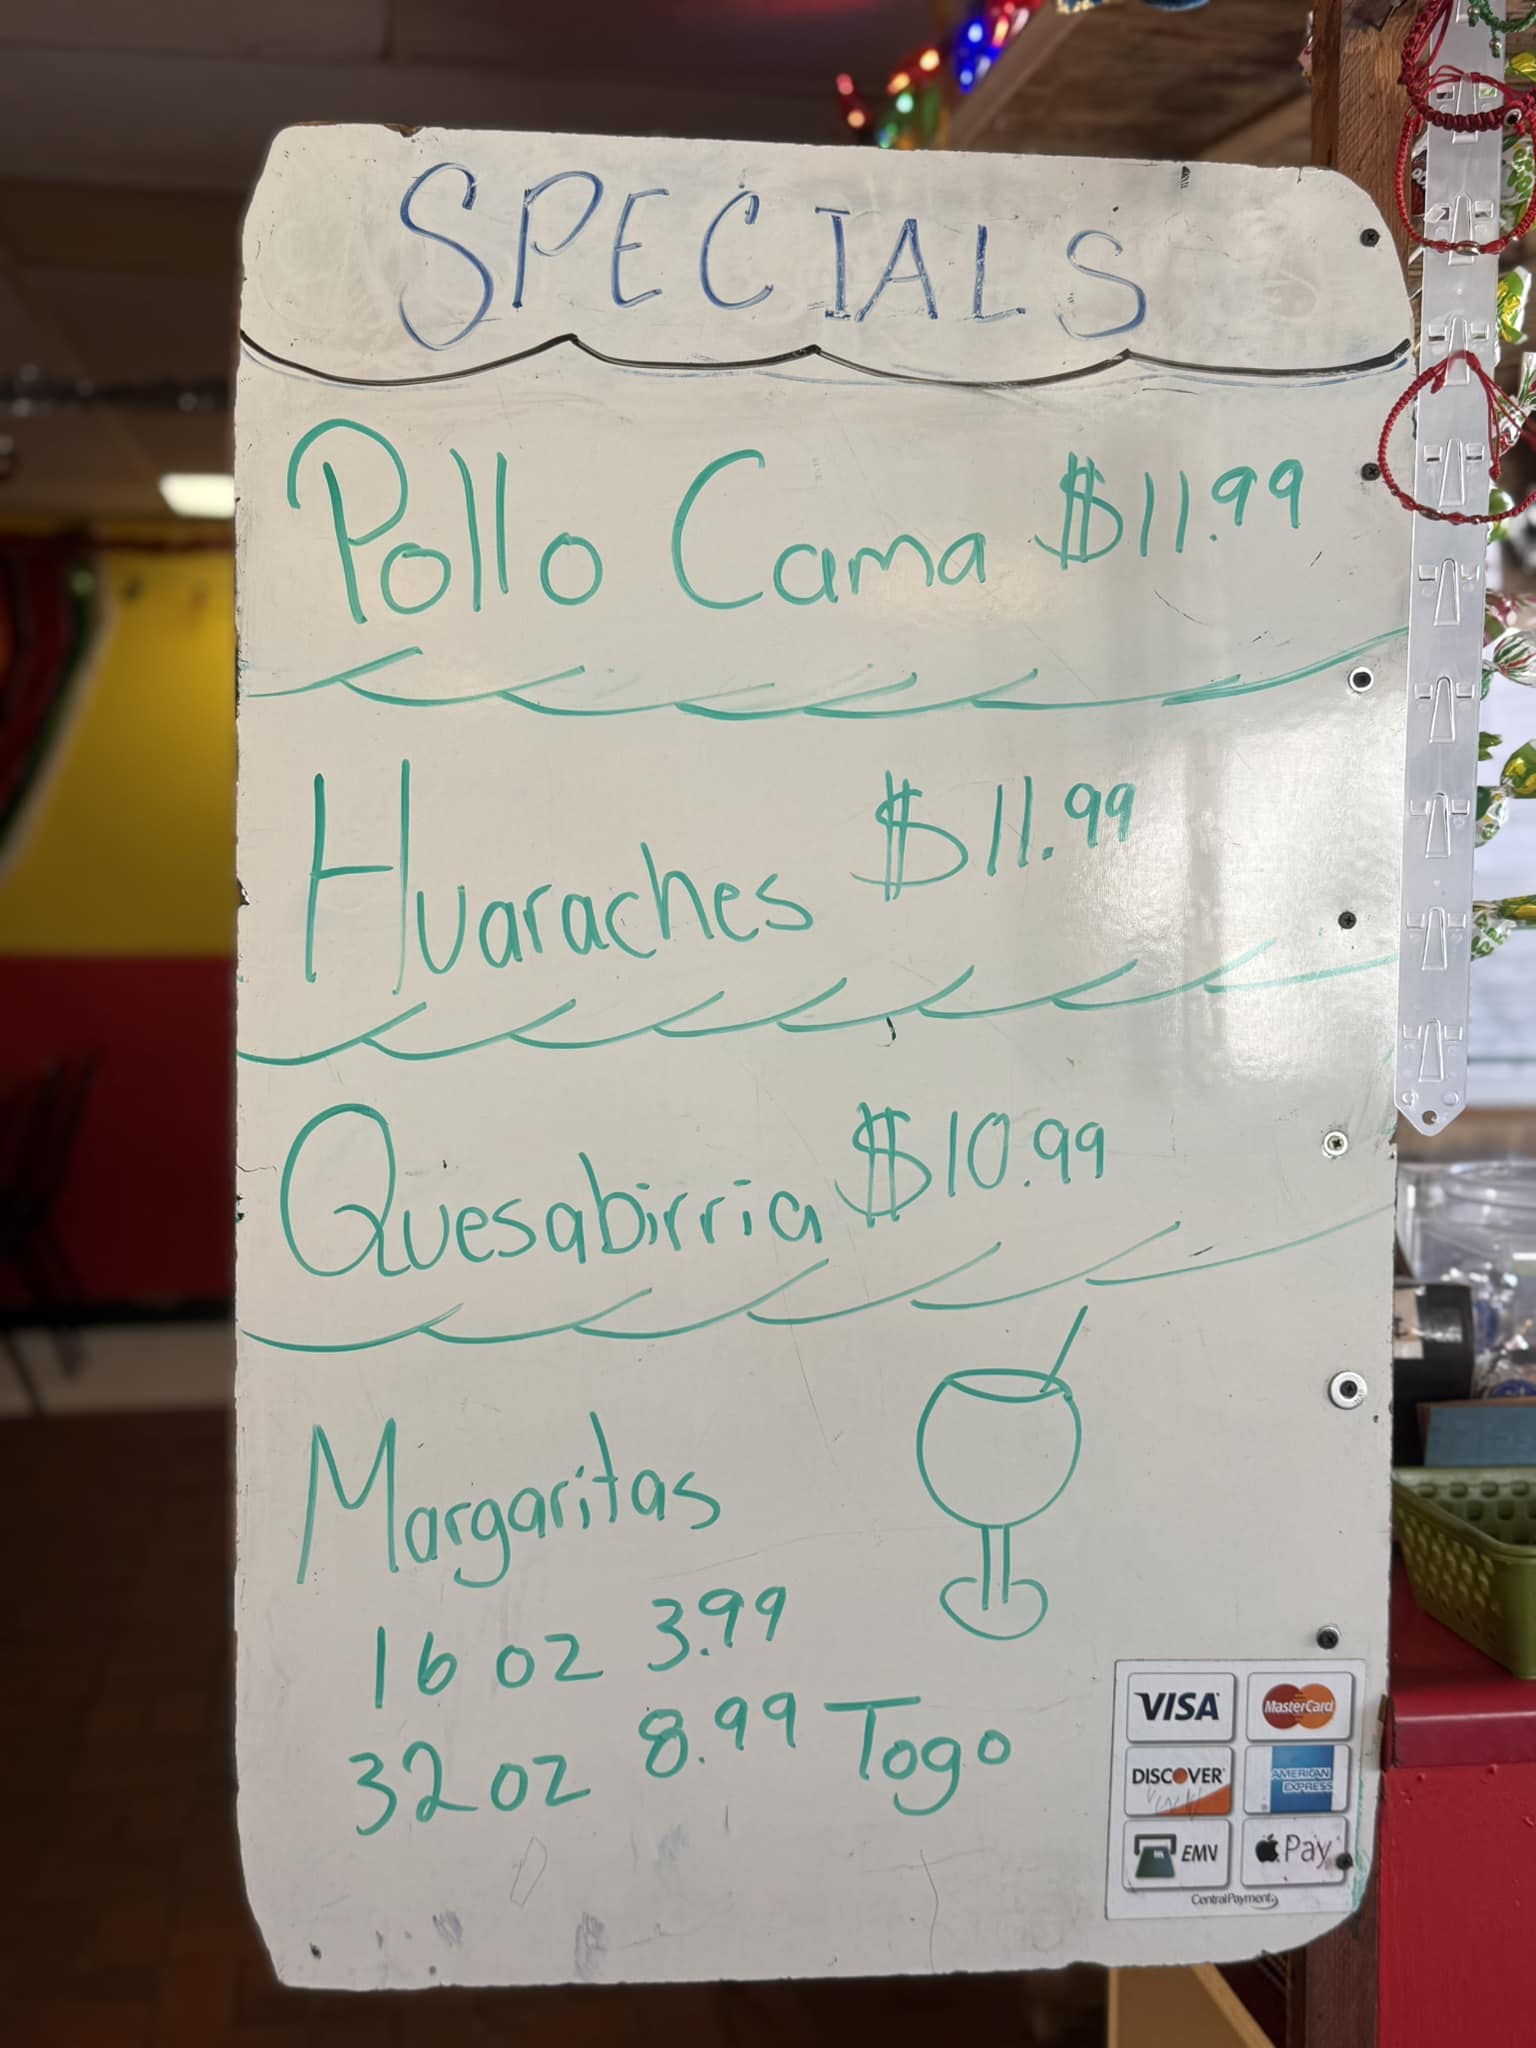 SPECIALS
Pollo Cama $11.99
Huaraches $11.99
Quesabirria $10.99
Margaritas
16 oz 3.99
32 oz 8.99 Togo
VISA MasterCard
DISCOVER AMERICAN EXPRESS
EMV Pay
CentralPayment